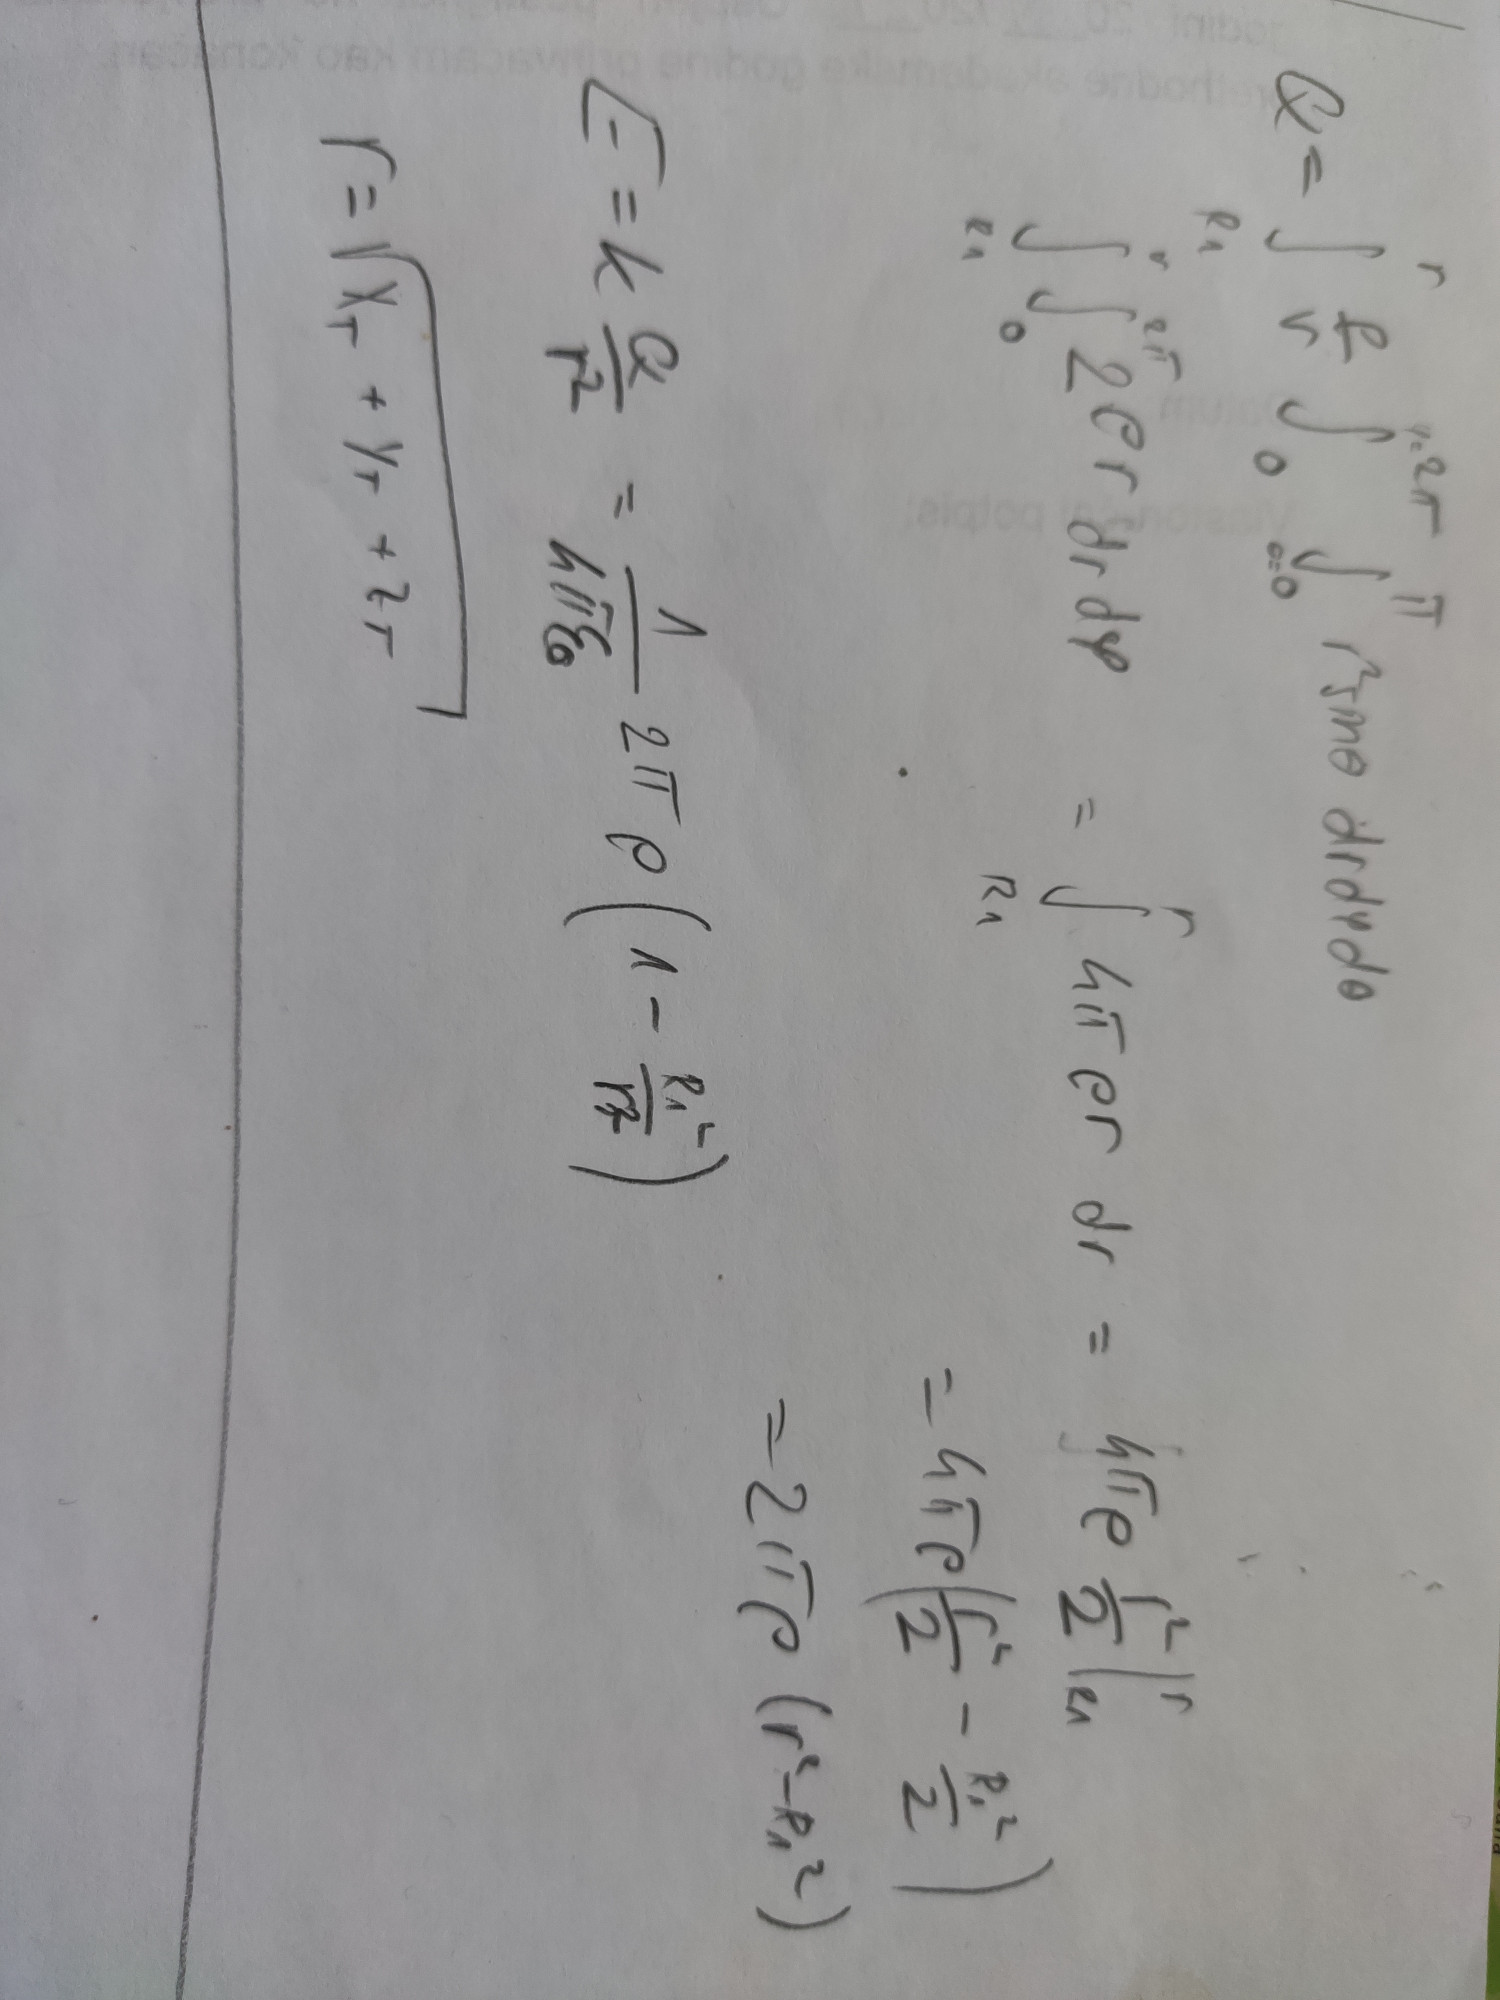 Q = ∫_{R₁}^{r} ρ/r ∫_{0}^{φ=2π} ∫_{θ=0}^{π} r² sinθ dr dφ dθ
∫_{R₁}^{r} ∫_{0}^{2π} 2ρr dr dφ = ∫_{R₁}^{r} 4πρr dr = 4πρ r²/2 |_{R₁}^{r}
= 4πρ(r²/2 - R₁²/2)
= 2πρ(r² - R₁²)
E = k Q/r² = 1/4πε₀ 2πρ(1 - R₁²/r²)
r = √(x_T + y_T + z_T)
Datum
potpis: